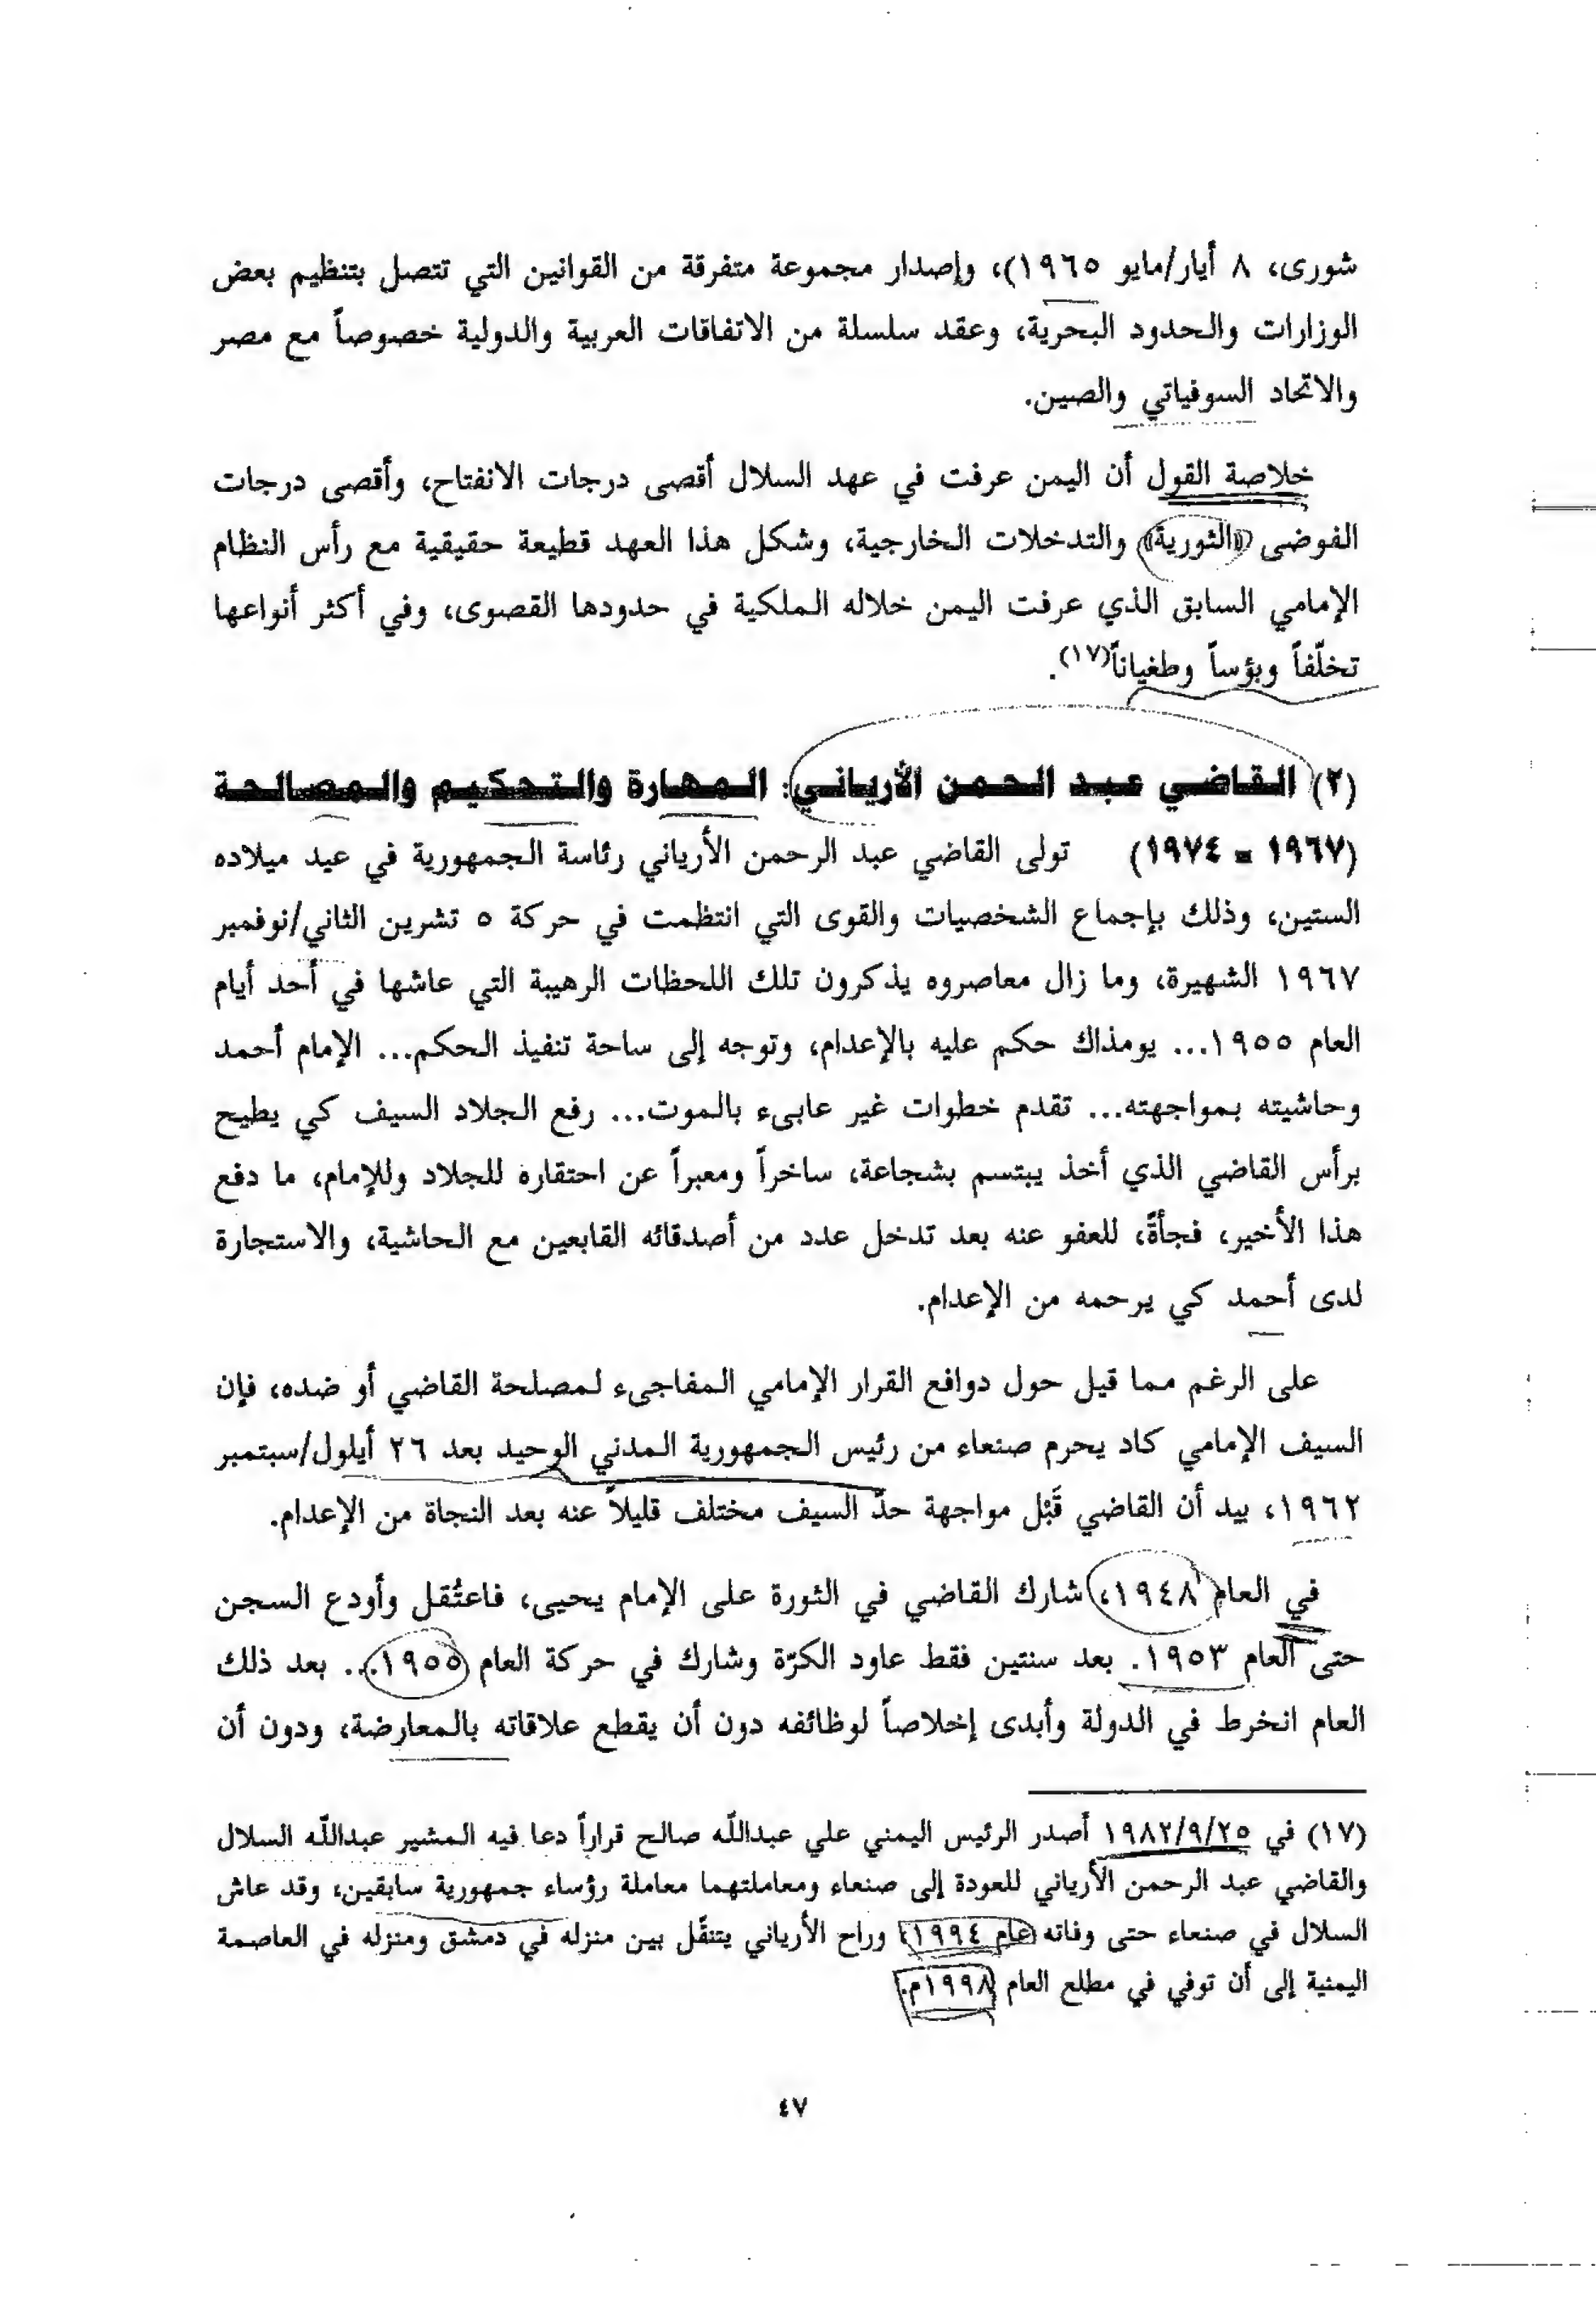 شورى، ٨ أيار/مايو ١٩٦٥)، وإصدار مجموعة متفرقة من القوانين التي تتصل بتنظيم بعض
الوزارات والحدود البحرية، وعقد سلسلة من الاتفاقات العربية والدولية خصوصاً مع مصر
والاتحاد السوفياتي والصين.
خلاصة القول أن اليمن عرفت في عهد السلال أقصى درجات الانفتاح، وأقصى درجات
الفوضى «الثورية» والتدخلات الخارجية، وشكل هذا العهد قطيعة حقيقية مع رأس النظام
الإمامي السابق الذي عرفت اليمن خلاله الملكية في حدودها القصوى، وفي أكثر أنواعها
تخلّفاً وبؤساً وطغياناً(١٧).
(٢) القاضي عبد الرحمن الأرياني: المهارة والتحكيم والمصالحة
(١٩٦٧ - ١٩٧٤) تولى القاضي عبد الرحمن الأرياني رئاسة الجمهورية في عيد ميلاده
الستين، وذلك بإجماع الشخصيات والقوى التي انتظمت في حركة ٥ تشرين الثاني/نوفمبر
١٩٦٧ الشهيرة، وما زال معاصروه يذكرون تلك اللحظات الرهيبة التي عاشها في أحد أيام
العام ١٩٥٥... يومذاك حكم عليه بالإعدام، وتوجه إلى ساحة تنفيذ الحكم... الإمام أحمد
وحاشيته بمواجهته... تقدم خطوات غير عابىء بالموت... رفع الجلاد السيف كي يطيح
برأس القاضي الذي أخذ يبتسم بشجاعة، ساخراً ومعبراً عن احتقاره للجلاد وللإمام، ما دفع
هذا الأخير، فجأةً، للعفو عنه بعد تدخل عدد من أصدقائه القابعين مع الحاشية، والاستجارة
لدى أحمد كي يرحمه من الإعدام.
على الرغم مما قيل حول دوافع القرار الإمامي المفاجىء لمصلحة القاضي أو ضده، فإن
السيف الإمامي كاد يحرم صنعاء من رئيس الجمهورية المدني الوحيد بعد ٢٦ أيلول/سبتمبر
١٩٦٢، بيد أن القاضي قَبْل مواجهة حدّ السيف مختلف قليلاً عنه بعد النجاة من الإعدام.
في العام ١٩٤٨، شارك القاضي في الثورة على الإمام يحيى، فاعتُقل وأودع السجن
حتى العام ١٩٥٣. بعد سنتين فقط عاود الكرّة وشارك في حركة العام ١٩٥٥... بعد ذلك
العام انخرط في الدولة وأبدى إخلاصاً لوظائفه دون أن يقطع علاقاته بالمعارضة، ودون أن
(١٧) في ١٩٨٢/٩/٢٥ أصدر الرئيس اليمني علي عبدالله صالح قراراً دعا فيه المشير عبدالله السلال
والقاضي عبد الرحمن الأرياني للعودة إلى صنعاء ومعاملتهما معاملة رؤساء جمهورية سابقين، وقد عاش
السلال في صنعاء حتى وفاته عام ١٩٩٤، وراح الأرياني يتنقّل بين منزله في دمشق ومنزله في العاصمة
اليمنية إلى أن توفي في مطلع العام ١٩٩٨م.
٤٧